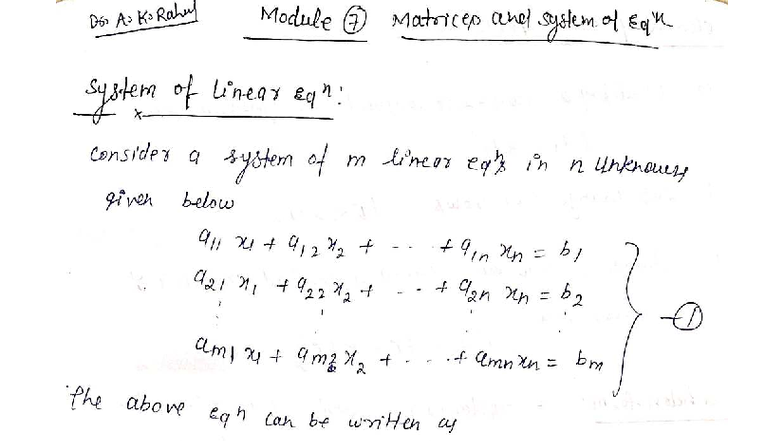 Dr. A. K. Rahul Module ⑦ Matrices and system of Eqⁿ
System of Linear Eqⁿ:
consider a system of m linear eqⁿs in n unknowns
given below
a₁₁ x₁ + a₁₂ x₂ + - - - + a₁ₙ xₙ = b₁
a₂₁ x₁ + a₂₂ x₂ + - - + a₂ₙ xₙ = b₂ —①
aₘ₁ x₁ + aₘ₂ x₂ + - - - + aₘₙ xₙ = bₘ
The above eqⁿ can be written as